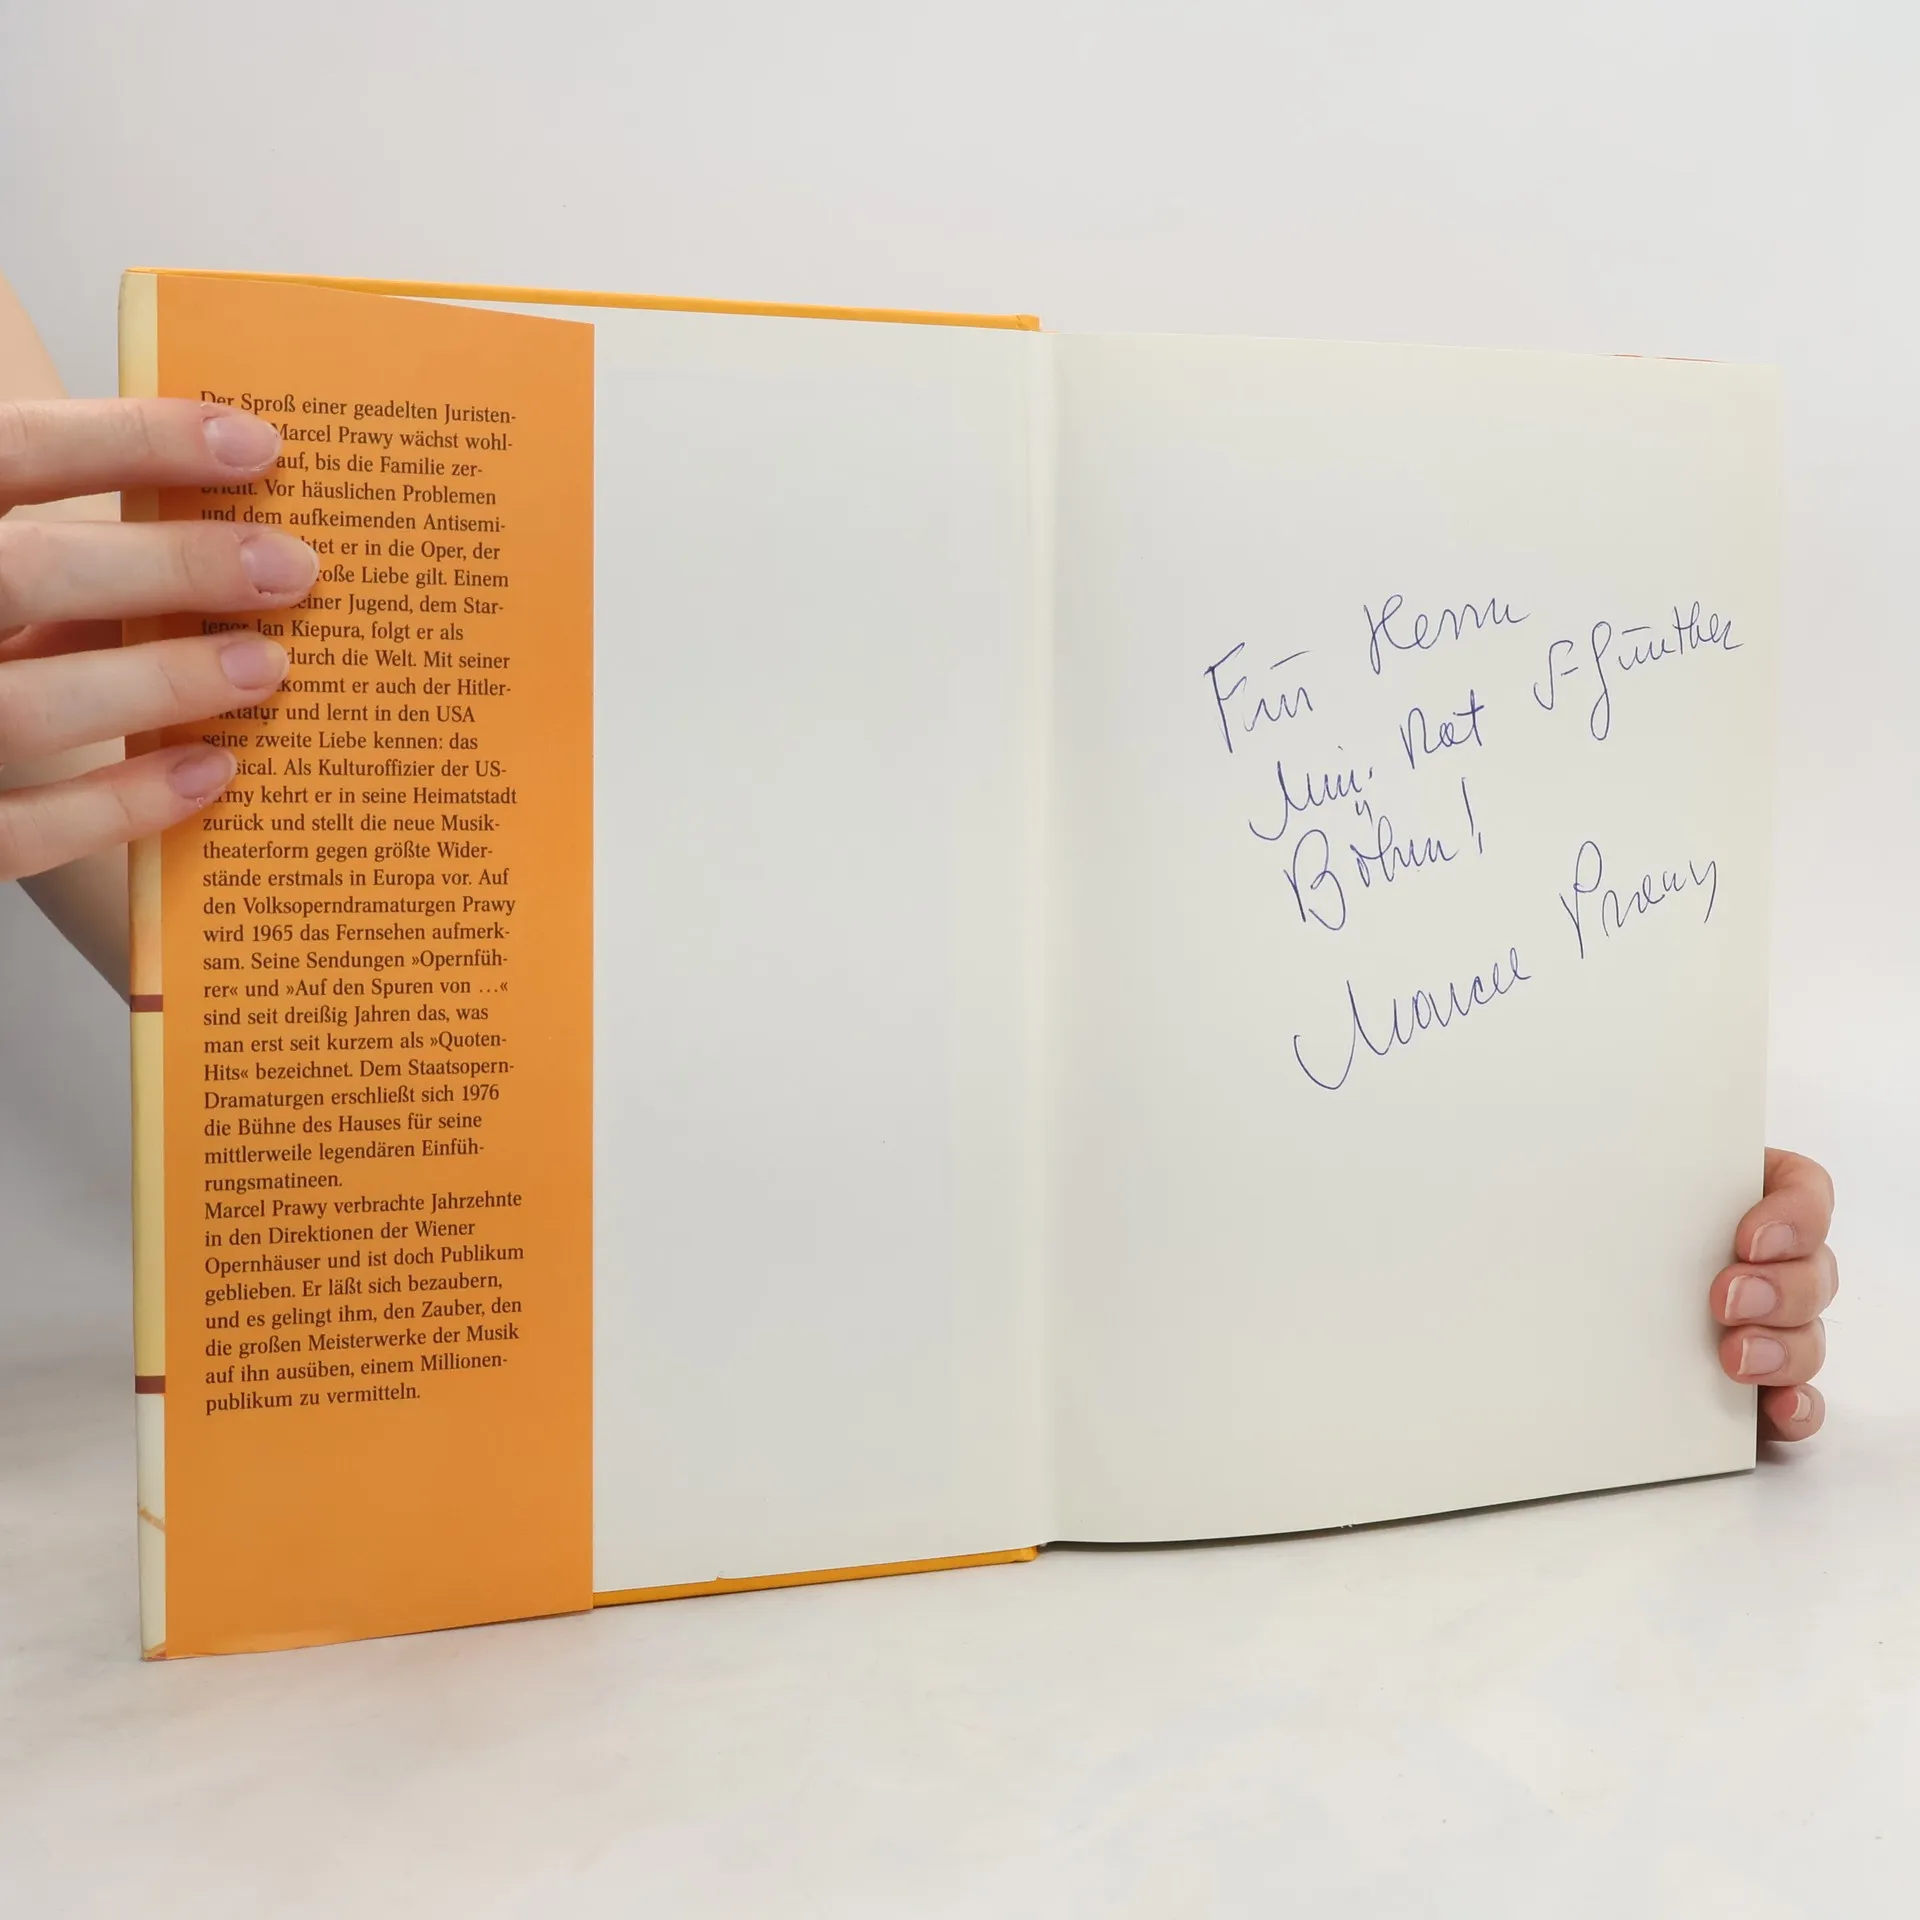 Der Sproß einer geadelten Juristen-
Marcel Prawy wächst wohl-
auf, bis die Familie zer-
bricht. Vor häuslichen Problemen
und dem aufkeimenden Antisemi-
er in die Oper, der
große Liebe gilt. Einem
seiner Jugend, dem Star-
tenor Jan Kiepura, folgt er als
durch die Welt. Mit seiner
kommt er auch der Hitler-
diktatur und lernt in den USA
seine zweite Liebe kennen: das
Musical. Als Kulturoffizier der US-
Army kehrt er in seine Heimatstadt
zurück und stellt die neue Musik-
theaterform gegen größte Wider-
stände erstmals in Europa vor. Auf
den Volksoperndramaturgen Prawy
wird 1965 das Fernsehen aufmerk-
sam. Seine Sendungen »Opernfüh-
rer« und »Auf den Spuren von ...«
sind seit dreißig Jahren das, was
man erst seit kurzem als »Quoten-
Hits« bezeichnet. Dem Staatsopern-
Dramaturgen erschließt sich 1976
die Bühne des Hauses für seine
mittlerweile legendären Einfüh-
rungsmatineen.
Marcel Prawy verbrachte Jahrzehnte
in den Direktionen der Wiener
Opernhäuser und ist doch Publikum
geblieben. Er läßt sich bezaubern,
und es gelingt ihm, den Zauber, den
die großen Meisterwerke der Musik
auf ihn ausüben, einem Millionen-
publikum zu vermitteln.
Für Herrn
Min. Rat Günther
Böhm!
Marcel Prawy